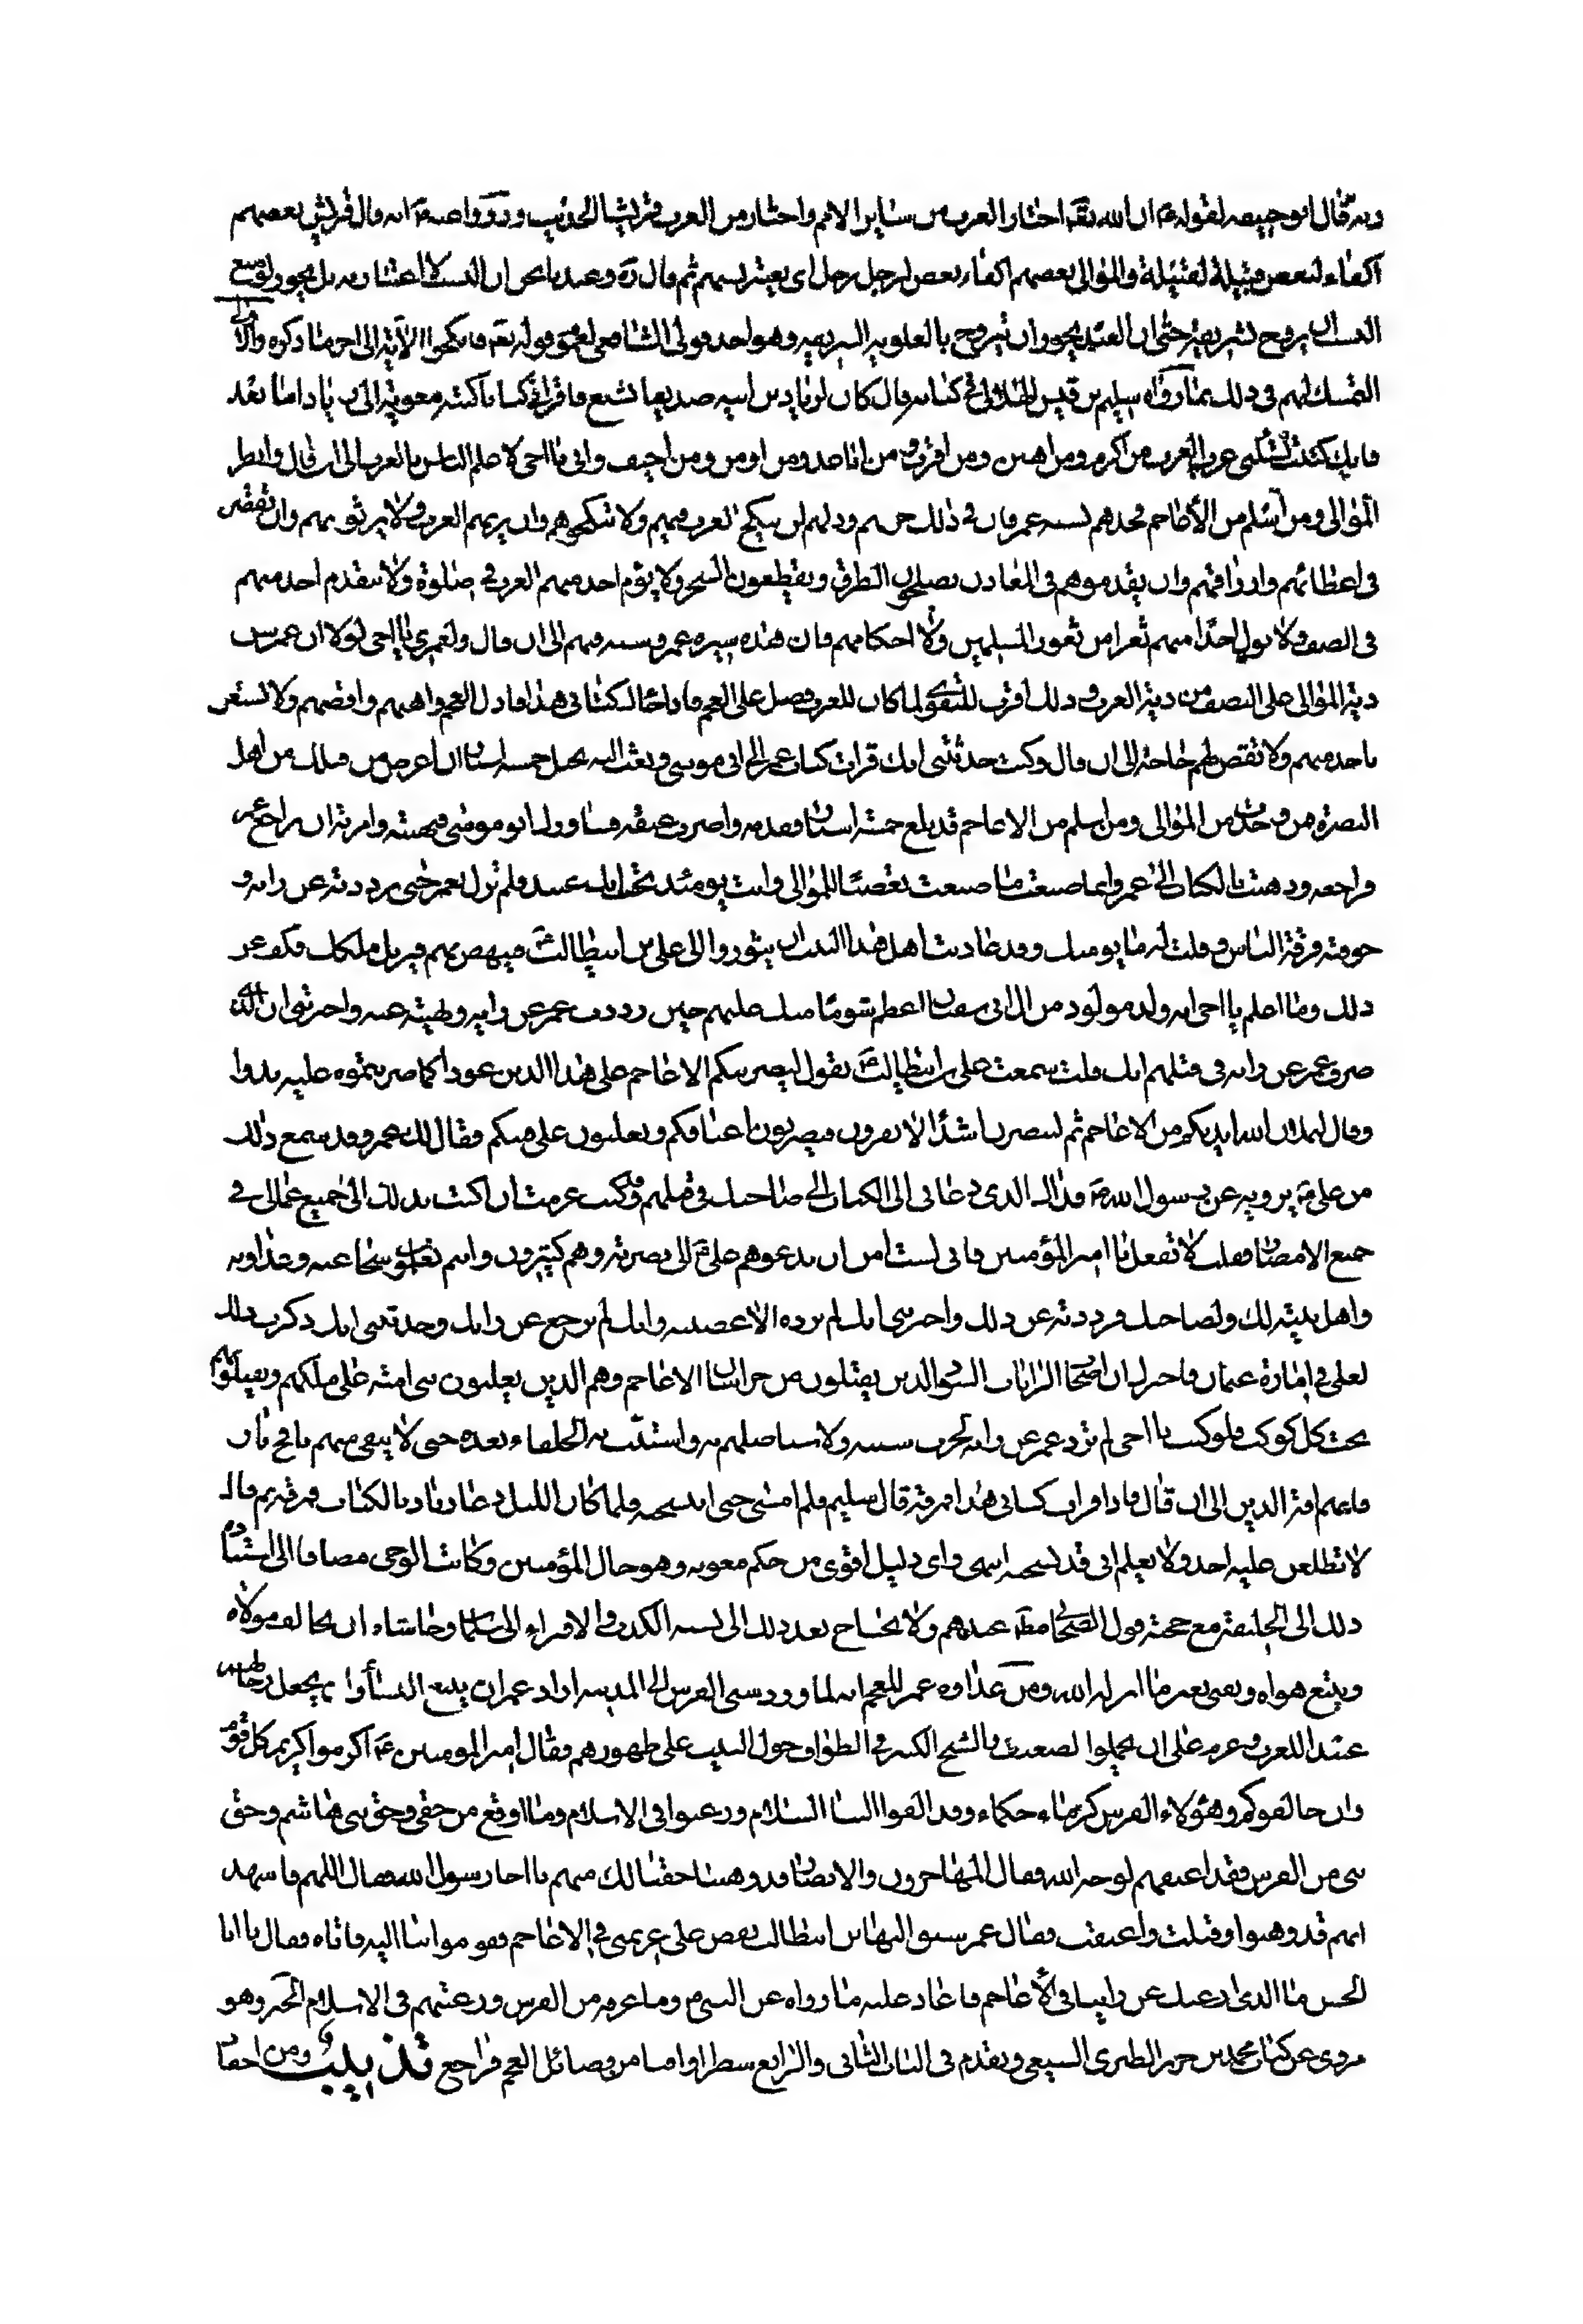 وبه قال ابو حنيفه لقوله ع ان الله تع اختار العرب من ساير الامم واختار من العرب قريشا الحديث وروو اعنه انه قال قريش بعضهم
اكفاء لبعض قبيلة لقبيلة والموالى بعضهم اكفاء بعض لرجل برجل اى يعتبر نسبهم ثم قال ره وعندنا نحن ان النسب لا اعتبار به بل يجوز لوضيع
النسب ان يتزوج بشريفة حتى ان العبد يجوز ان يتزوج بالعلوية الشريفة وهو احد قولى الشافعى لعموم قوله تع فانكحوا الآية الى اخر ما ذكره والا
التمسك لهم فى ذلك بما رواه سليم بن قيس الهلالى فى كتابه قال كان لزياد بن ابيه صديقا يتشيع فاقرانى كتابا كتبه معوية الى زياد اما بعد
فانك كتبت تسئلنى عن العرب من اكرم ومن اهين ومن اقرب ومن اباعد ومن اومن ومن اخيف وانى يا اخى لا علم الناس بالعرب الى ان قال وانظر
الموالى ومن اسلم من الأعاجم فخذهم بسنه عمر فان فى ذلك خزيهم وذلهم ان ينكح العرب فيهم ولا تنكحوهم وان يرثهم العرب ولا يرثونهم وان تقصر
فى اعطائهم وارزاقهم وان يقدموهم فى المغازى يصلحون الطرق ويقطعون الشجر ولا يؤم احد منهم العرب فى صلوة ولا يتقدم احد منهم
فى الصف ولا تول احدا منهم ثغرا من ثغور المسلمين ولا احكامهم فان هذه سيرة عمر وسنته فيهم الى ان قال ولعمرى يا اخى لولا ان عمر سن
دية الموالى على النصف من دية العرب وذلك اقرب للتقوى لما كان للعرب فضل على العجم فاذا جائك كتابى هذا فاذل العجم واهنهم واقصهم ولا تستعن
باحد منهم ولا تقض لهم حاجة الى ان قال وكنت حدثتنى انك قرات كتاب عمر الى ابى موسى وبعث اليه بحبل خمسه اشبار اعرض من قبلك من اهل
البصرة فمن وجدت من الموالى ومن اسلم من الاعاجم قد بلغ خمسة اشبار فقدمه واضرب عنقه فشاورك ابو موسى فنهيته وامرته ان يراجع عمر
فراجعه وذهبت بالكتاب الى عمر وانما صنعت ما صنعت تعصبا للموالى وانت يومئذ تحسب انك عبد فلم تزل بعمر حتى رددته عن رايه و
خوفته فرقة الناس وقلت له ما يومنك وقد عاديت اهل هذا البيت ان يثوروا الى على بن ابيطالب ع فينهض بهم فيزيل ملكك فكف عن
ذلك وما اعلم يا اخى انه ولد مولود من ال ابى سفيان اعظم شوما منك عليهم حين رددت عمر عن رايه ونهيته عنه واخبرتنى ان الذى
صرف عمر عن رايه فى قتلهم انك قلت سمعت على بن ابيطالب ع يقول ليضربنكم الاعاجم على هذا الدين عودا كما ضربتموه عليه بدوا
وقال ليملان الله ايديكم من الاعاجم ثم ليصيرن اشداء لا يفرون فيضربون اعناقكم ويغلبون على فيئكم فقال لك عمر وقد سمع ذلك
من على ع يرويه عن رسول الله ص فذاك الذى دعانى الى الكتاب الى صاحبك فى قتلهم وكنت عزمت ان اكتب بذلك الى جميع عمالى فى
جميع الامصار فقلت لا تفعل يا امير المؤمنين فانى لست امن ان يدعوهم على ع الى نصرته وهم كثيرون وانت تعلم شجاعته وعداوته
واهل بيته لك ولصاحبك فرددته عن ذلك واخبرتنى انك لم ترده الا عصبيه وانك لم ترجع عن رايك وحدثتنى انك ذكرت ذلك
لعلى فى امارة عثمان فاخبرك ان اصحاب الرايات السود الذين يقبلون من خراسان الاعاجم وهم الذين يغلبون بنى امية على ملكهم ويقتلونهم
تحت كل كوكب فلو كنت يا اخى لم ترد عمر عن رايه لجرت سنه ولاستاصلهم به واستنت به الخلفاء بعده حتى لا يبقى منهم نافخ نار
فانهم افة الدين الى ان قال فاذا قرات كتابى هذا فمزقه قال سليم فلم امش حتى انسخه فلما كان الليل دعا زياد بالكتاب فمزقه ثم قال
لا تطلعن عليه احد ولا يعلم انى قد نسخته انتهى واى دليل اقوى من حكم معويه وهو خال المؤمنين وكاتب الوحى مضافا الى استناده
ذلك الى الخليفة مع حجية قول الصحابى مط عندهم ولا يحتاج بعد ذلك الى نسبة الكذب والافتراء الى سلمان وحاشاه ان يخالف مولاه
ويتبع هواه ويفتى بغير ما انزل الله ومن عداوه عمر للعجم انه لما ورد سبى الفرس الى المدينه اراد عمر ان يبيع النساء وان يجعل رجالهم
عبيدا للعرب وعزم على ان يحملوا الضعيف والشيخ الكبير فى الطواف حول البيت على ظهورهم فقال امير المومنين ع اكرموا كريم كل قوم
وان خالفوكم وهؤلاء الفرس كرماء حكماء وقد القوا الينا السلام ورغبوا فى الاسلام وما وقع من حقى وحق بنى هاشم وحق
بنى من الفرس فقد اعتقتهم لوجه الله فقال المهاجرون والانصار قد وهبنا حقنا لك منهم يا اخا رسول الله فقال اللهم فاشهد
انهم قد وهبوا وقبلت واعتقت فقال عمر سبق اليها ابن ابيطالب ونقض على عزيمتى فى الاعاجم فقوموا بنا اليه فاتاه فقال يا ابا
الحسن ما الذى ارغبك عن راينا فى الأعاجم فاعاد عليه ما رواه عن النبى ص وما عرفه من الفرس ورغبتهم فى الاسلام الخبر وهو
مروى عن كتاب محمد بن جرير الطبرى الشيعى وتقدم فى الباب الثانى والرابع سطرا وافيا من فضائل العجم فراجع تذييل ومن احفاد